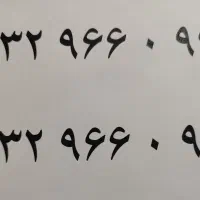 ۳۲ ۹۶۶ ۰ ۹
۳۲ ۹۶۶ ۰ ۹